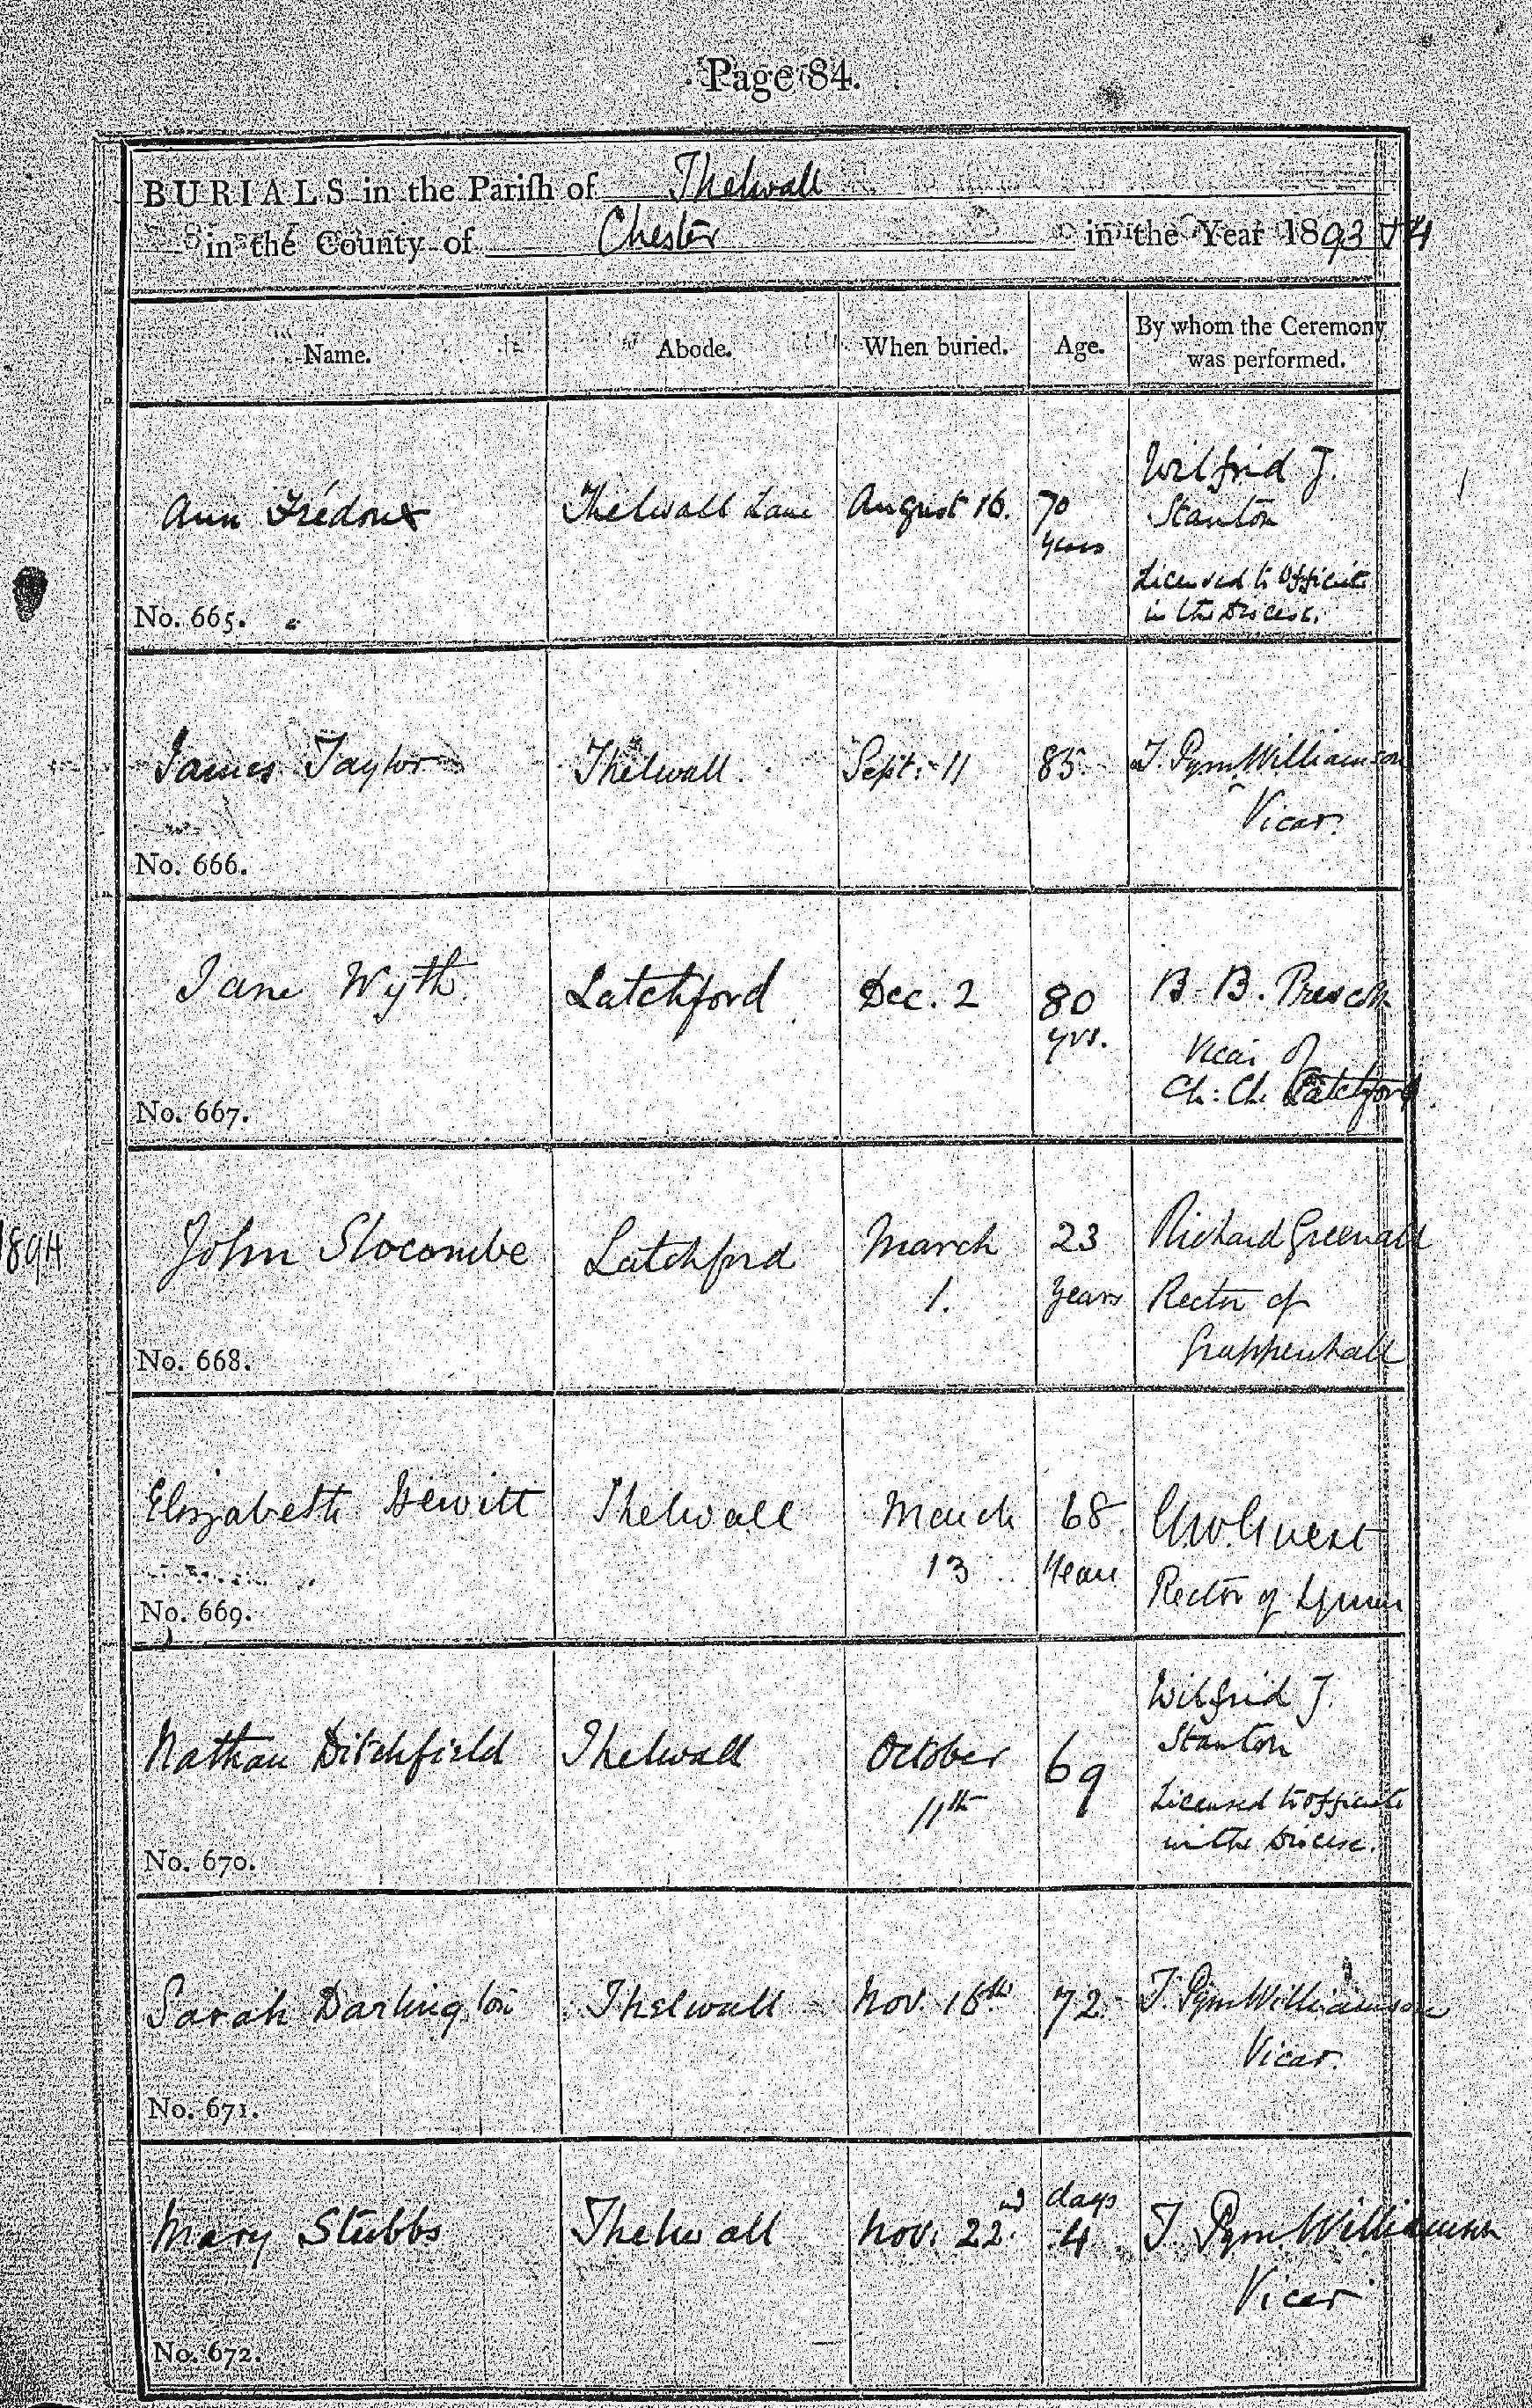 Page 84.
BURIALS in the Pariſh of Thelwall
in the County of Chester in the Year 1893 & 4
Name. Abode. When buried. Age. By whom the Ceremony was performed.
Ann Frédoux Thelwall Lane August 16. 70 years Wilfrid J. Stanton Licensed to Officiate in the Diocese.
No. 665.
James Taylor Thelwall. Sept. 11 85 T. Pym Williamson Vicar.
No. 666.
Jane Wyth. Latchford Dec. 2 80 yrs. B. B. Prescott Vicar of Ch: Ch. Latchford.
No. 667.
1894 John Slocombe Latchford March 1. 23 years Richard Greenall Rector of Grappenhall
No. 668.
Elizabeth Hewitt Thelwall March 13 68 Years G.W. Guest Rector of Lymm
No. 669.
Nathan Ditchfield Thelwall October 11th 69 Wilfrid J. Stanton Licensed to officiate in the Diocese.
No. 670.
Sarah Darlington Thelwall Nov. 16th 72 T. Pym Williamson Vicar.
No. 671.
Mary Stubbs Thelwall Nov. 22nd days 4 T. Pym Williamson Vicar
No. 672.